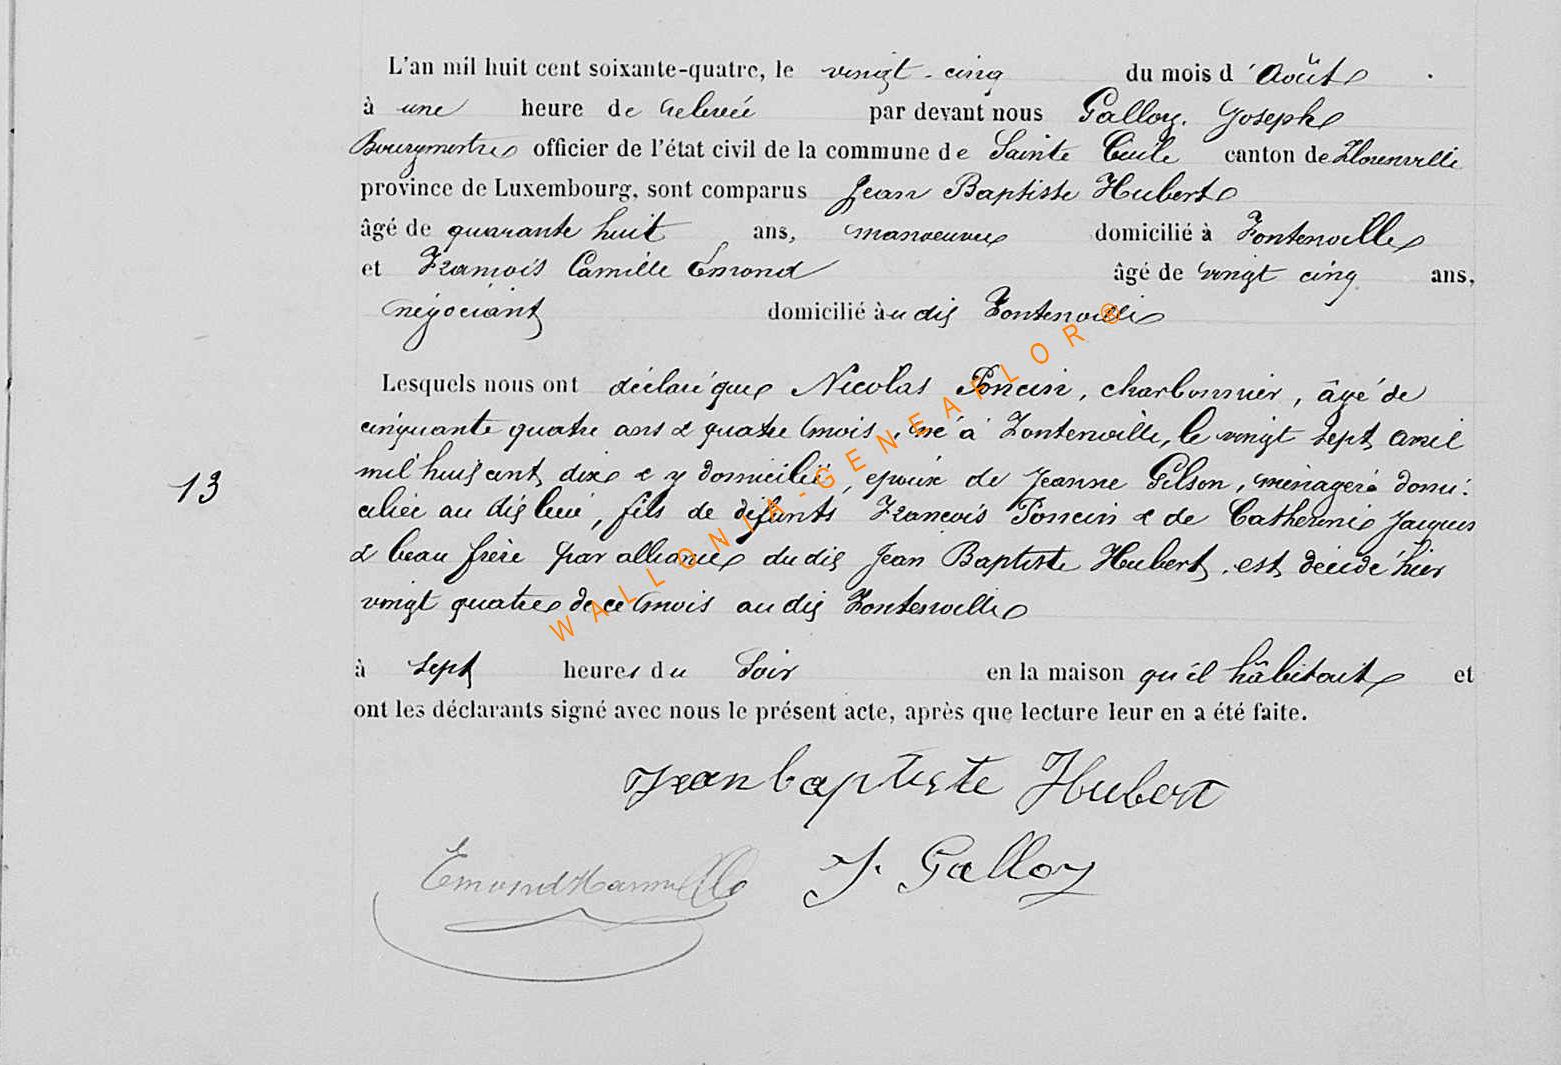 L'an mil huit cent soixante-quatre, le vingt-cinq du mois d'Août
à une heure de relevée par devant nous Galloy, Joseph
Bourgmestre officier de l'état civil de la commune de Sainte Cécile canton de Florenville
province de Luxembourg, sont comparus Jean Baptiste Hubert
âgé de quarante huit ans, manoeuvre domicilié à Fontenoille
et François Camille Emond âgé de vingt cinq ans,
négociant domicilié àudit Fontenoille
Lesquels nous ont déclaré que Nicolas Poncin, charbonnier, âgé de
cinquante quatre ans & quatre mois, né à Fontenoille, le vingt sept avril
mil huit cent dix & y domicilié, époux de Jeanne Gilson, ménagère domi-
ciliée au dit lieu, fils de défunts François Poncin & de Catherine Jacques
& beau frère par alliance du dit Jean Baptiste Hubert, est décédé hier
vingt quatre de ce mois au dit Fontenoille
13
à sept heures du Soir en la maison qu'il hâbitait et
ont les déclarants signé avec nous le présent acte, après que lecture leur en a été faite.
Jean baptiste Hubert
Emond J. Galloy
WALLONIA-GENEAFLOR®